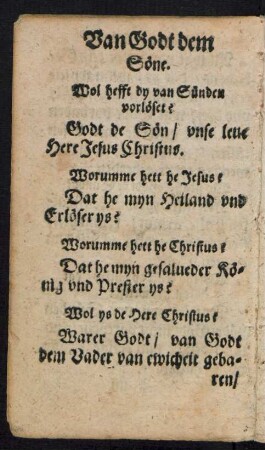 Van Godt dem
Söne.
Wol hefft dy van Sünden
vorlöset?
Godt de Sön/ vnse leue
Here Jesus Christus.
Worumme hett he Jesus?
Dat he myn Heiland vnd
Erlöser ys?
Worumme hett he Christus?
Dat he myn gesalueder Kö-
nig vnd Prester ys?
Wol ys de Here Christus?
Warer Godt/ van Godt
dem Vader van ewicheit geba-
ren/